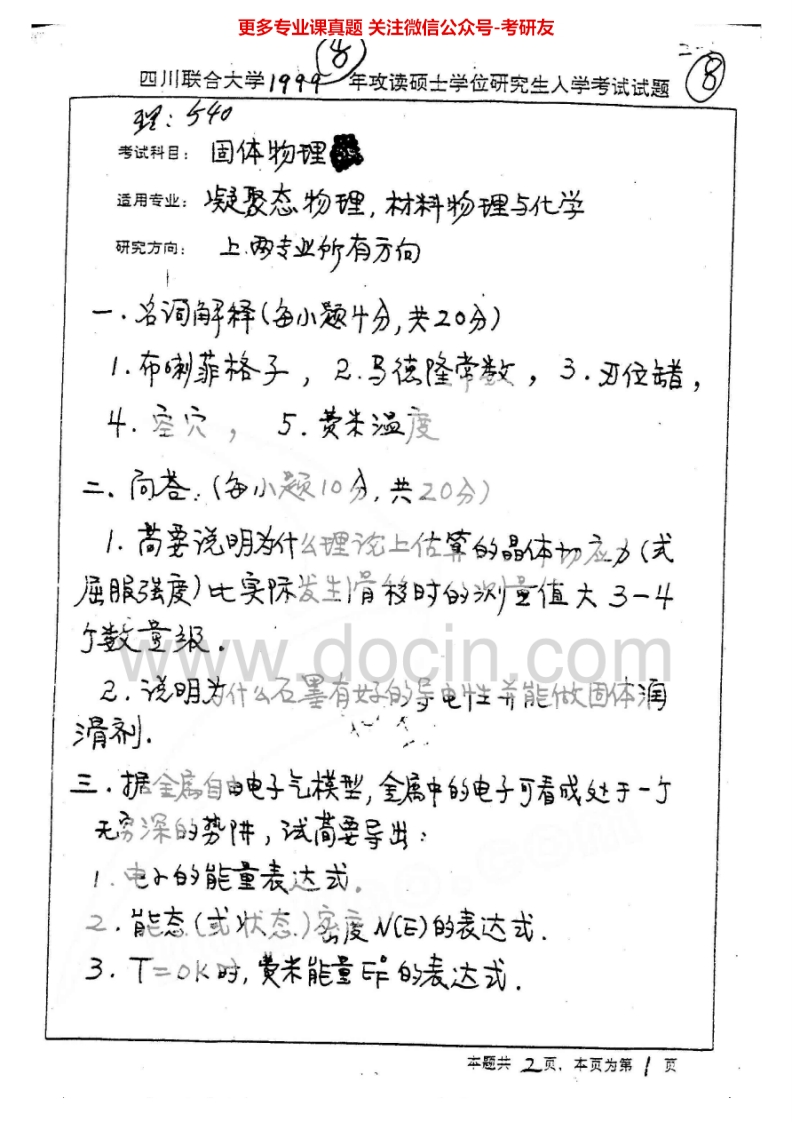 更多专业课真题 关注微信公众号-考研友
⑧
四川联合大学1999年攻读硕士学位研究生入学考试试题 ⑧
理:540
考试科目: 固体物理
适用专业: 凝聚态物理,材料物理与化学
研究方向: 上两专业所有方向
一.名词解释(每小题4分,共20分)
1.布喇菲格子, 2.马德隆常数, 3.刃位错,
4.空穴, 5.费米温度
二、问答:(每小题10分,共20分)
1.简要说明为什么理论上估算的晶体切应力(或
屈服强度)比实际发生滑移时的测量值大3-4
个数量级.
www.docin.com
2.说明为什么石墨有好的导电性并能做固体润
滑剂.
三.据金属自由电子气模型,金属中的电子可看成处于一个
无穷深的势阱,试简要导出:
1.电子的能量表达式.
2.能态(或状态)密度N(E)的表达式.
3.T=0K时,费米能量E_F^0的表达式.
本题共 2 页,本页为第 1 页